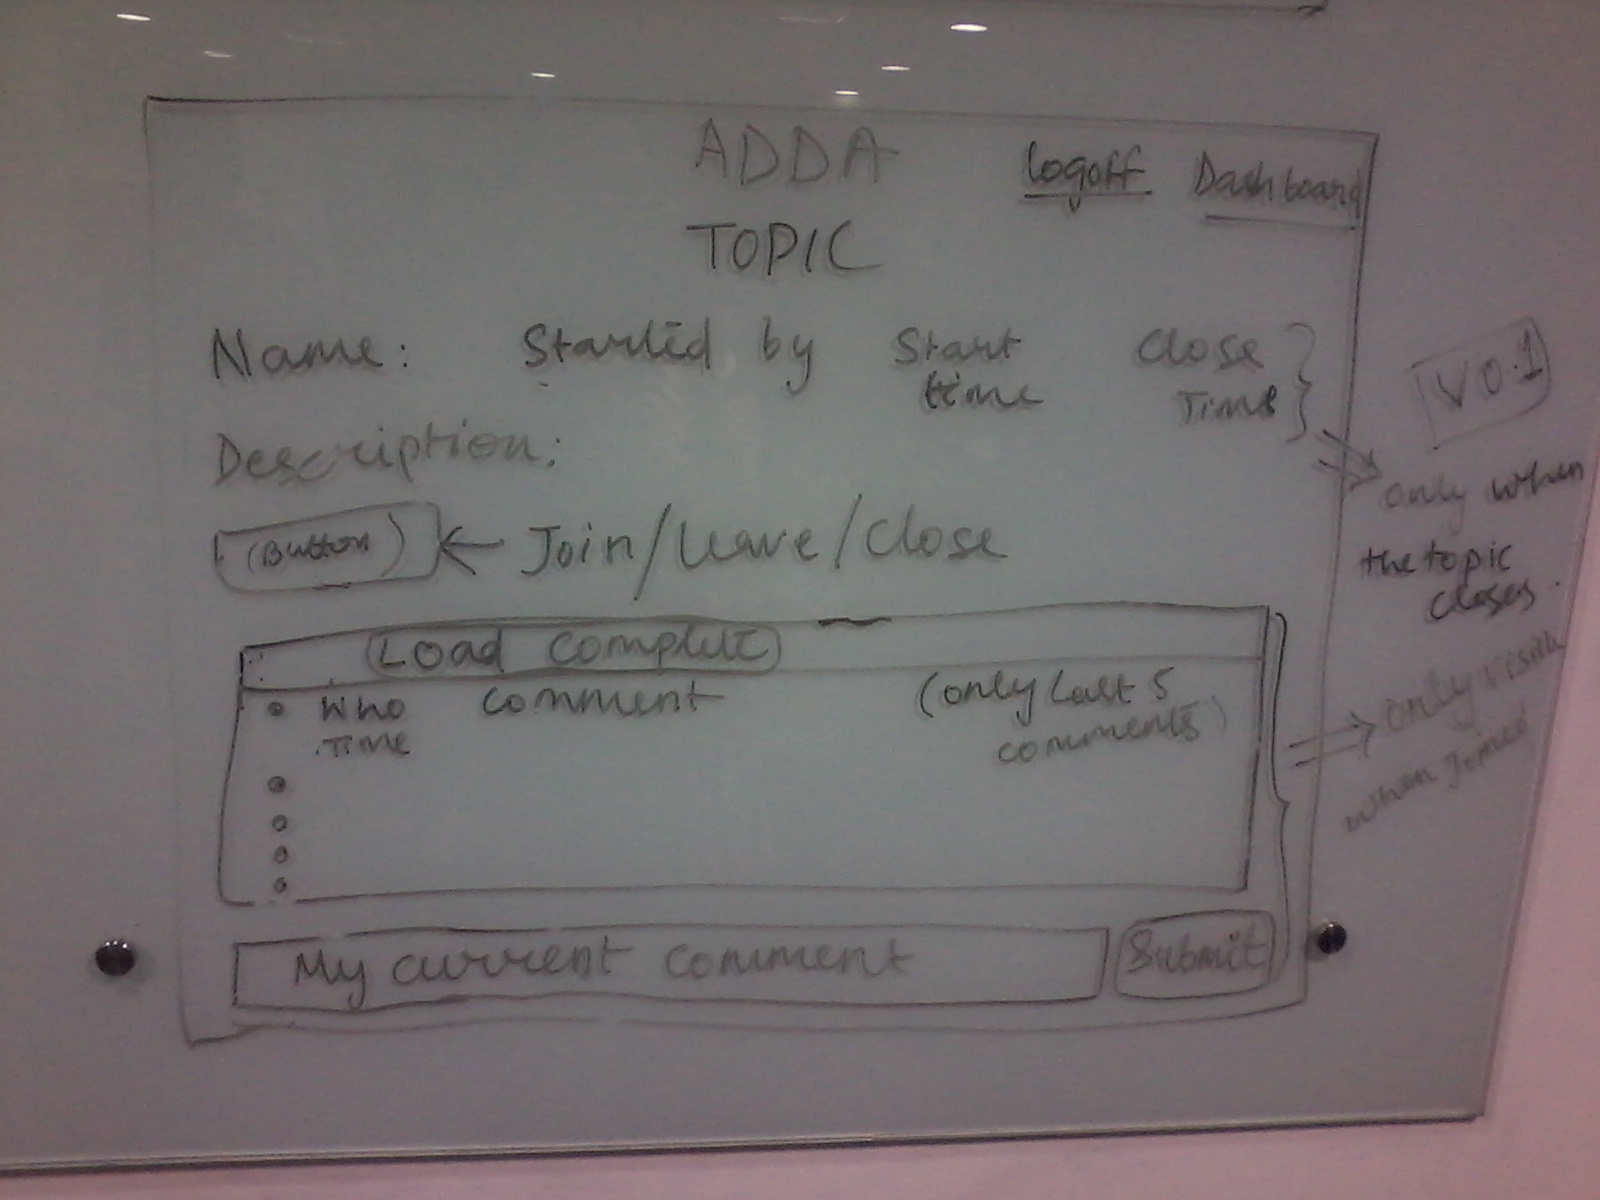 ADDA
logoff Dashboard
TOPIC
Name: Started by Start time Close Time
V0.1
Description:
only when
the topic
closes.
(Button) ← Join/Leave/Close
Load complete
Who Time
comment
(only last 5
comments)
only visible
when Joined
My current comment
Submit